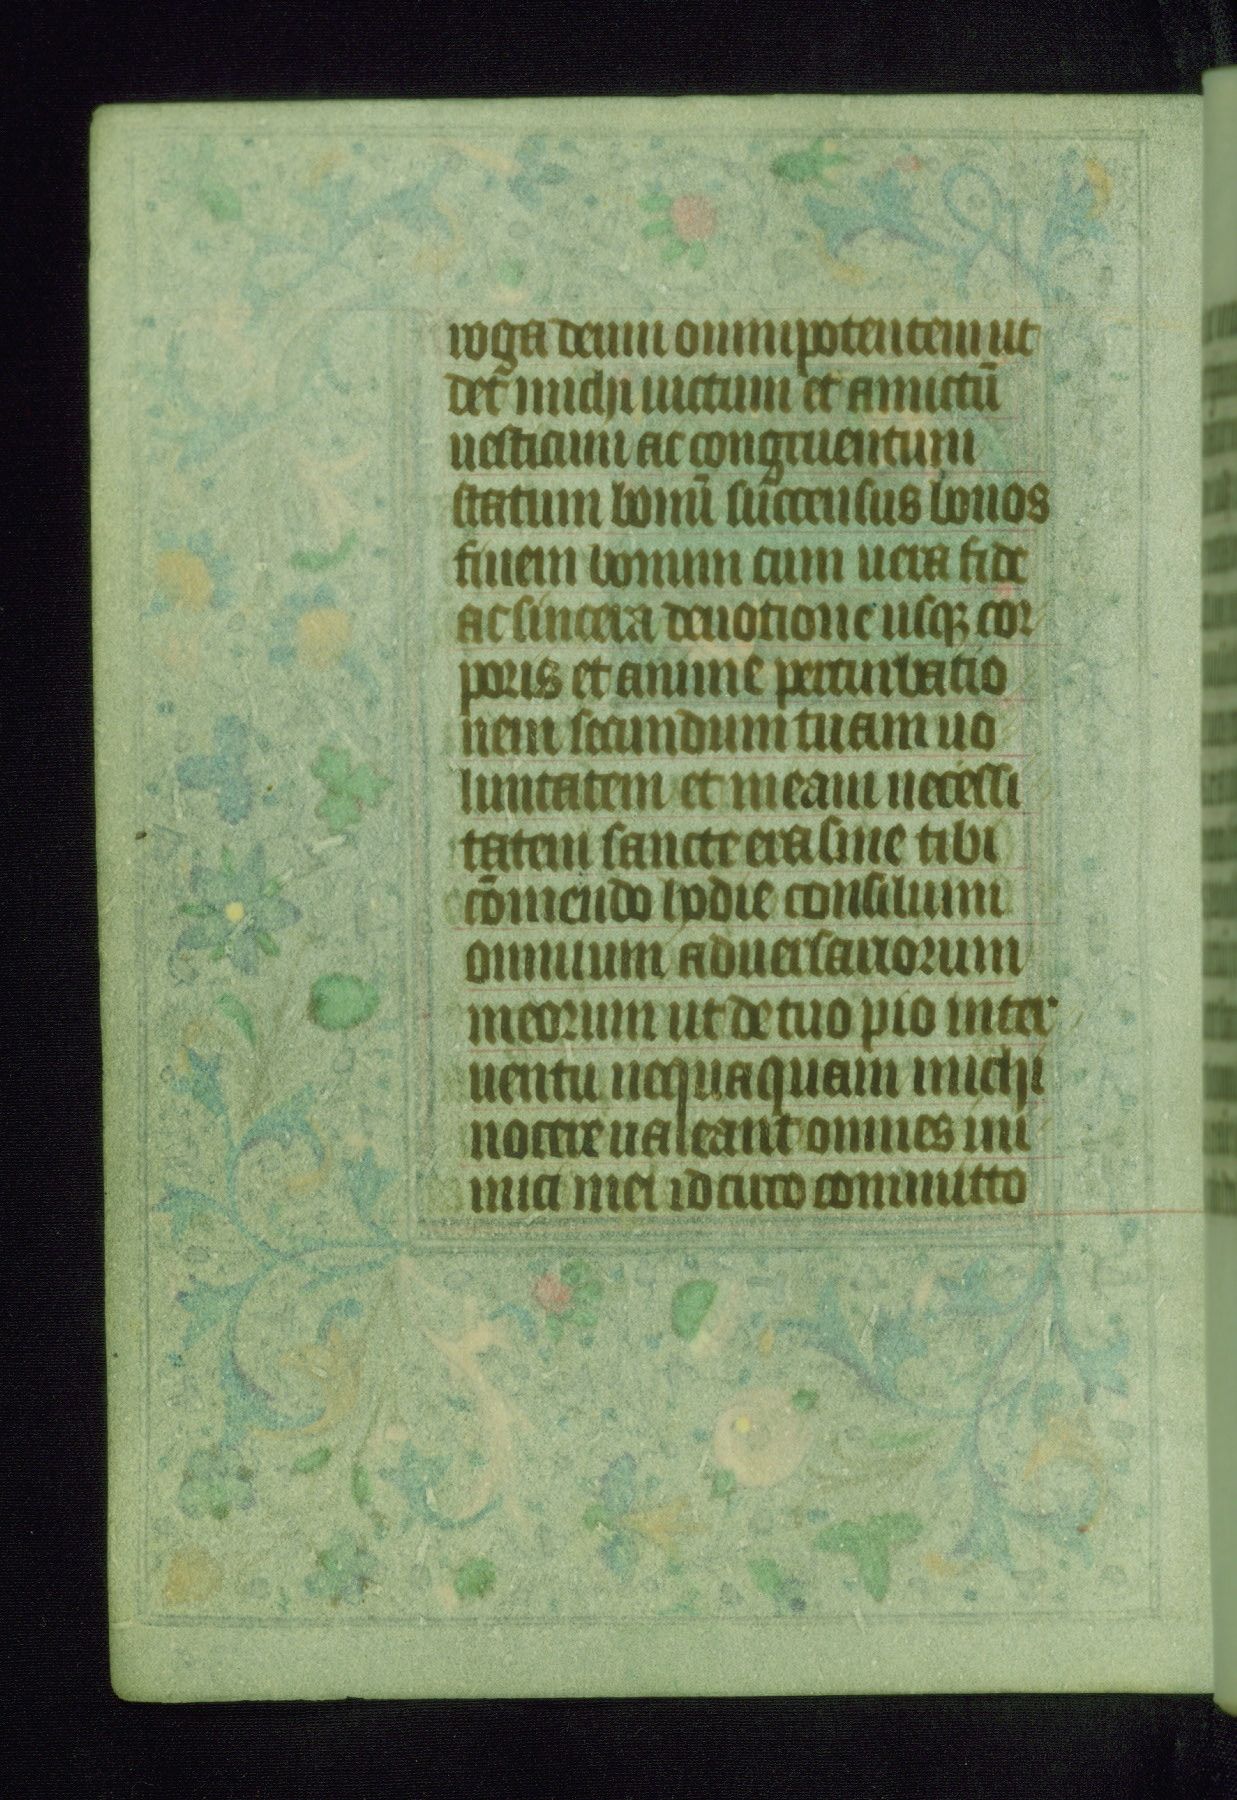 roga deum omnipotentem ut
det michi uictum et amictū
uesticium ac congruentum
statum bonū successus bonos
finem bonum cum uera fide
ac sincera deuotione usqꝫ cor
poris et anime perturbatio
nem secundum tuam uo
luntatem et meam necessi
tatem sancte erasme tibi
cōmendo hodie consilium
omnium aduersariorum
meorum ut de tuo pio inter
uentu nequaquam michi
nocere ualeant omnes ini
mici mei idcirco committo